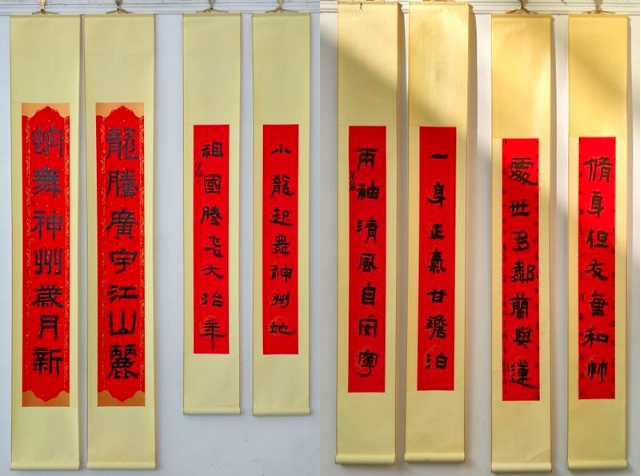 龍騰廣宇江山麗
蛇舞神州歲月新
小龍起舞神州地
祖國騰飛大治年
一身正氣甘澹泊
兩袖清風自安寧
脩身但友和竹
處世多鄰蘭與蓮